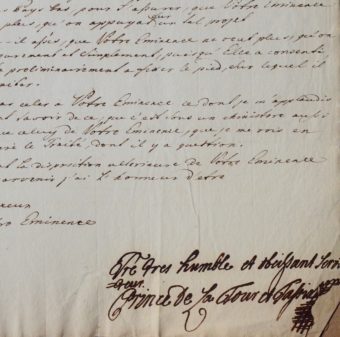 Pays bas, pour s'assurer, que Votre Eminence
plus, qu'on appuya sur un tel projet
il assis, que Votre Eminence ne veut plus, qu'on
purement et simplement, puisqu'Elle a consenti
preliminairement a fixer le pied, sur lequel il
traiter.
celer a Votre Eminence ce dont je m'applaudis
savoir de ce, que c'est sous un ministere aussi
celuy de Votre Eminence, que je me vois en
le Traité, dont il y a question.
la disposition ulterieure de Votre Eminence
parvenir j'ai l'honneur d'etre
Eminence
Tré tres humble et obeissant Serv
Prince de la Tour et Tassis